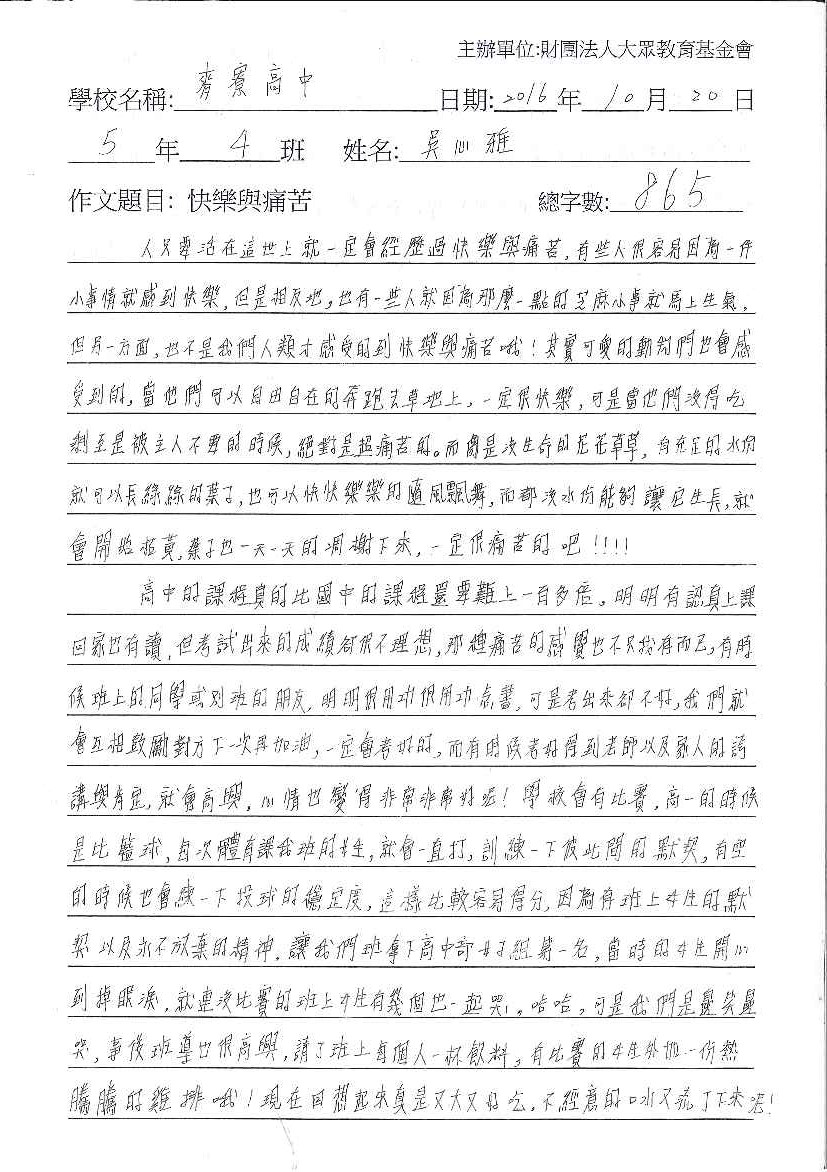 主辦單位:財團法人大眾教育基金會
學校名稱: 麥寮高中 日期: 2016 年 10 月 20 日
5 年 4 班 姓名: 吳心雅
作文題目: 快樂與痛苦 總字數: 865
人只要活在這世上就一定會經歷過快樂與痛苦,有些人很容易因為一件
小事情就感到快樂,但是相反地,也有一些人就因為那麼一點的芝麻小事就馬上生氣。
但另一方面,也不是我們人類才感受的到快樂與痛苦哦!其實可愛的動物們也會感
受到的,當他們可以自由自在的奔跑在草地上,一定很快樂,可是當他們沒得吃
剩至是被主人不要的時候,絕對是超痛苦的。而像是沒生命的花花草草,有充足的水份
就可以長綠綠的葉子,也可以快快樂樂的隨風飄舞,而都沒水份能夠讓它生長,就
會開始枯黃,葉子也一天一天的凋謝下來,一定很痛苦的吧!!!!
高中的課程真的比國中的課程還要難上一百多倍。明明有認真上課
回家也有讀,但考試出來的成績卻很不理想,那種痛苦的感覺也不只我有而已,有時
候班上的同學或別班的朋友,明明很用功很用功念書,可是考出來卻不好,我們就
會互相鼓勵對方下一次再加油,一定會考好的,而有時候考好得到老師以及家人的誇
講與肯定,就會高興,心情也變得非常非常好呢!學校會有比賽,高一的時候
是比籃球,每次體育課我班的女生,就會一直打,訓練一下彼此間的默契,有空
的時候也會練一下投球的穩定度,這樣比較容易得分,因為有班上女生的默
契以及永不放棄的精神,讓我們班拿下高中部女子組第一名,當時的女生開心
到掉眼淚,就連沒比賽的班上女生有幾個也一起哭,哈哈,可是我們是邊笑邊
哭,事後班導也很高興,請了班上每個人一杯飲料,有比賽的女生外加一份熱
騰騰的雞排哦!現在回想起來真是又大又好吃,不經意的口水又流了下來呢!